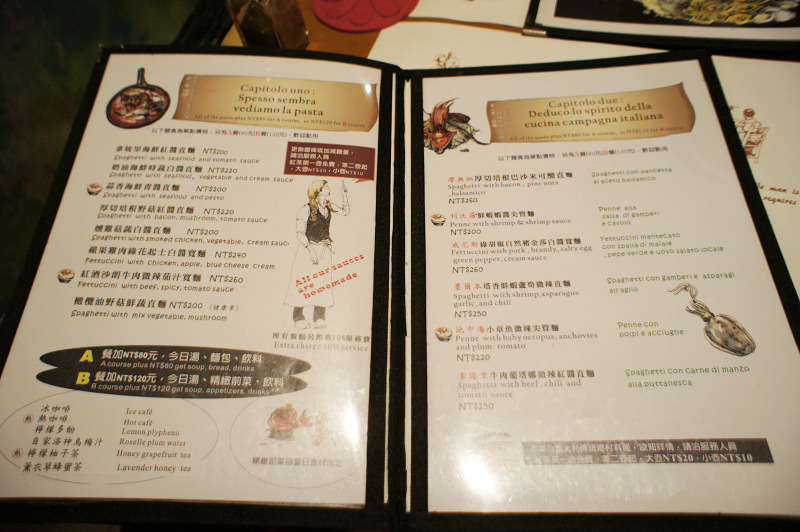 Capitolo uno :
Spesso sembra
vediamo la pasta
All of the pasta plus NT$80 for A course, or NT$120 for B course
拿坡里海鮮紅醬直麵 NT$200
Spaghetti with seafood and tomato sauce
奶油海鮮時蔬白醬直麵 NT$220
Spaghetti with seafood, vegetable and cream sauce
蒜香海鮮青醬直麵 NT$200
Spaghetti with seafood and pesto
厚切培根野菇紅醬直麵 NT$220
Spaghetti with bacon, mushroom, tomato sauce
燻雞菇蔬白醬直麵 NT$200
Spaghetti with smoked chicken, vegetable, cream sauce
蘋果雞肉綠花起士白醬寬麵 NT$240
Fettuccini with chicken, apple, blue cheese cream
紅酒沙朗牛肉微辣茄汁寬麵 NT$260
Fettuccini with beef, spicy, tomato sauce
橄欖油野菇鮮蔬直麵 NT$200 (健康素)
Spaghetti with mix vegetable, mushroom
更換麵條或加減麵量，
請洽服務人員
紅茶第一壺免費，第二壺起，
大壺NT$20，小壺NT$10
All our sauces
are
homemade
所有餐點另酌收10%服務費
Extra charge 10% service
A 餐加NT$80元，今日湯、麵包、飲料
A course plus NT$80 get soup, bread, drinks
B 餐加NT$120元，今日湯、精緻前菜、飲料
B course plus NT$120 get soup, appetizers, drinks
冰咖啡 Ice café
熱 熱咖啡 Hot café
檸檬多酚 Lemon plypheno
自家洛神烏梅汁 Roselle plum water
熱 檸檬柚子茶 Honey grapefruit tea
薰衣草蜂蜜茶 Lavender honey tea
Capitolo due :
Deduco lo spirito della
cucina campagna italiana
All of the pasta plus NT$80 for A course, or NT$120 for B course
摩典納厚切培根巴沙米可醋直麵
Spaghetti with bacon, pine nuts
, balsamico
NT$260
Spaghetti con pancetta
ai aceto balsamico
利沃諾鮮蝦蝦醬尖管麵
Penne with shrimp & shrimp sauce
NT$200
Penne alla
salsa di gamberi
e cavolo
威尼斯綠胡椒自然豬奈莎白醬寬麵
Fettuccini with pork, brandy, salty egg
green pepper, cream sauce
NT$260
Fettuccini mantecato
con spalla di maiale
, pepe verde e uovo salato locale
塔香鮮蝦蘆筍微辣直麵
Spaghetti with shrimp, asparagus
garlic, and chili
NT$250
Spaghetti con gamberi e asparagi
all'aglio
地中海小章魚微辣尖管麵
Penne with baby octopus, anchovies
and plum tomato
NT$220
Penne con
polpi e acciughe
拿坡里牛肉葡塔娜微辣紅醬直麵
Spaghetti with beef, chili and
tomato sauce
NT$250
Spaghetti con Carne di manzo
alla puttanesca
欲知詳情，請洽服務人員
紅茶第一壺免費，第二壺起，大壺NT$20，小壺NT$10